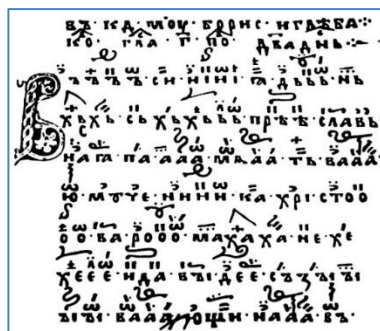 ВЪ · КД · МОУ · БОРИС · И ГЛѢБА ·
КО · ГЛА · Г · ПО · ДВАДНЬ
В Ъ · Ъ · Ъ · Ъ · СИ · НИ · И · НІ · І · ГА · ДЬ · Ь · Ь · НЬ
ХЪ ХЪ · СЬ ХЪ ХЪ Ь Ь · ПРѢ · Ѣ · СЛАВЬ
НАГА · ПА · А · А · А · МѦ · А · А · ТЬ · ВА · А · А ·
Ю · МОУЧЕ · НИ · И · И · КА · ХРІСТОО
О О · ВА · РО О О · МАХАХА · НЕ · ХЕ
ХЕ Е Е · НДА · ВЪІ · ДЕ · Е · СЪ · ЪІ · ЪІ
ЪІ · ЪІ · ВА · А · А · ЮЩИ · НА · А · А · ВЪ ·